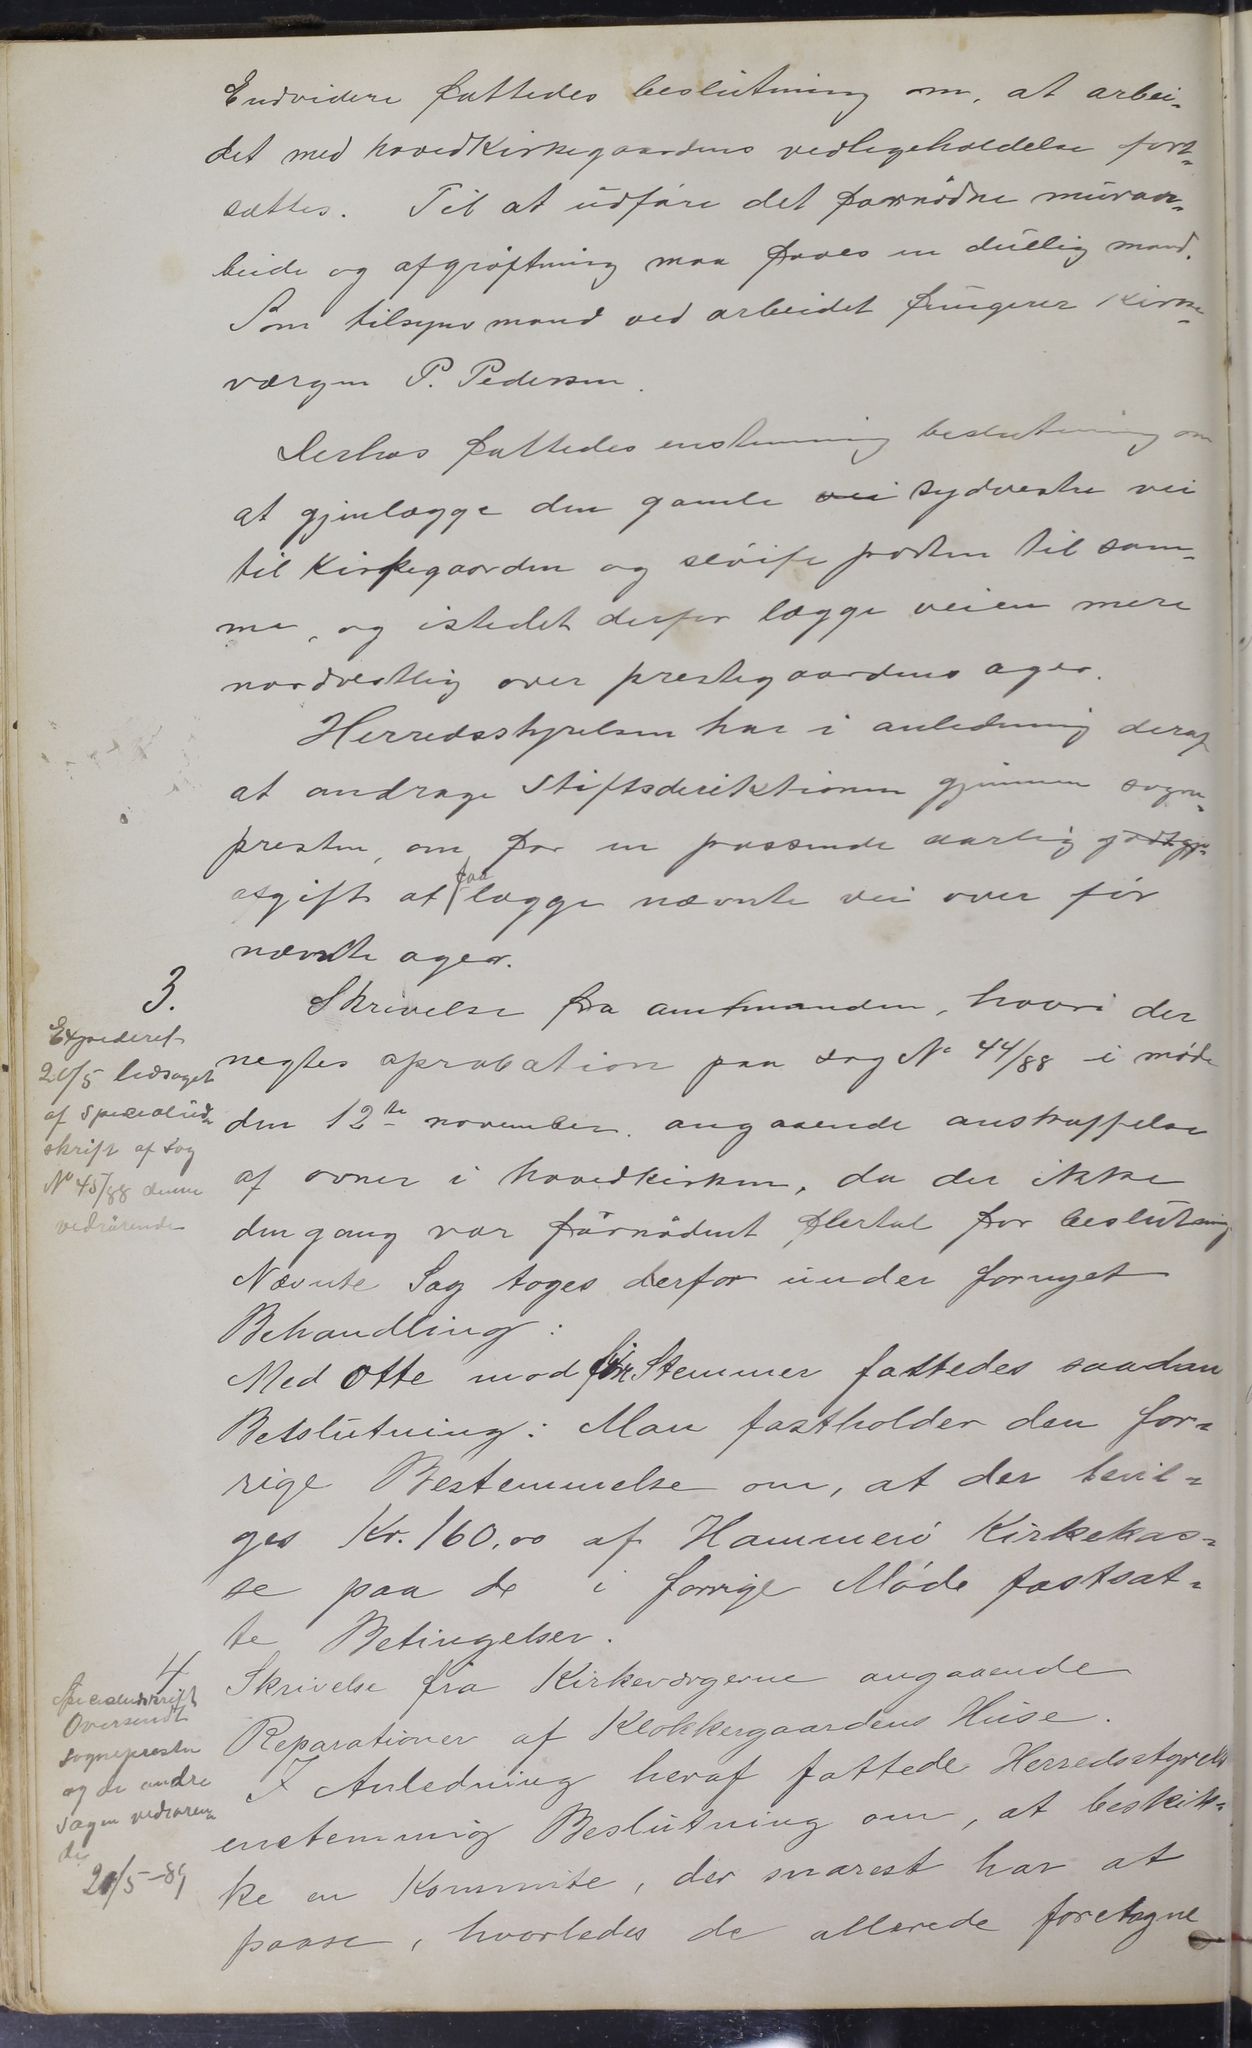 Endvidere fattedes beslutning om, at arbei-
det med hovedkirkegaardens vedligeholdelse fort-
sættes. Til at udføre det fornødne murar-
beide og afgrøftning maa faaes en duelig mand.
Som tilsynsmand ved arbeidet fungerer Kirke-
værgen P. Pedersen.
Derhos fattedes enstemmig beslutning om
at gjenlægge den gamle vei sydvestre vei
til Kirkegaarden og sløife porten til sam-
me, og istedet derfor lægge veien mere
nordvestlig over prestegaardens ager.
Herredsstyrelsen har i anledning deraf
at andrage Stiftsderiktionen gjennem sogne-
presten, om for en passende aarlig godtgjø-
afgift at faa lægge nævnte vei over før
nævnte ager.
3.
Skrivelse fra amtmanden, hvori der
negtes aprobation paa sag No 44/88 i møde
den 12te november angaaende anskaffelse
af ovner i hovedkirken, da der ikke
dengang var fornødent flertal for beslutning
Nævnte Sag toges derfor under fornyet
Behandling:
Med otte mod fire Stemmer fattedes saadan
Beslutning: Man fastholder den for-
rige Bestemmelse om, at der bevil-
ges Kr. 160,00 af Hammerø Kirkekas-
se paa de i forrige Møde fastsat-
te Betingelser.
Experderet
20/5 ledsaget
af specialud-
skrift af sag
No 45/88 denne
vedrørende
4
Skrivelse fra Kirkeværgerne angaaende
Reparationer af Klokkergaardens Huse.
I Anledning heraf fattede Herredsstyrels
enstemmig Beslutning om, at beskik-
ke en Kommite, der snarest har at
paase, hvorledes de allerede foretagne
Specialudskrift
Oversendt
sognepresten
og de andre
sagen vedrøren-
de
20/5-89